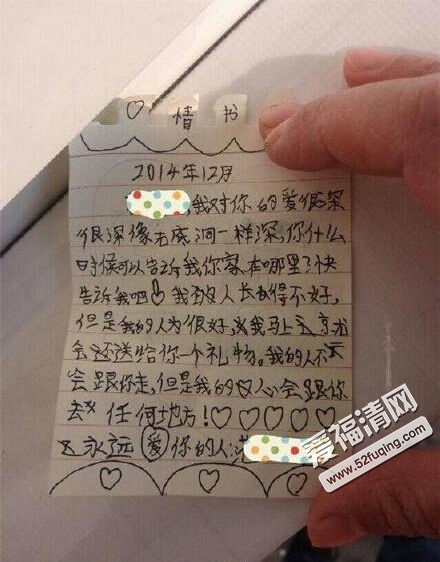 ♡ 情 书
2014年12月
,我对你的爱很深
很深像无底洞一样深,你什么
时候可以告诉我你家在哪里?快
告诉我吧!我的人长得不好,
但是我的人为很好,我马上
会还送给你一个礼物。我的人不
会跟你走,但是我的♡心会跟你
去 任何地方!♡♡♡♡♡
永远爱你的人:
爱福清网
www.52fuqing.com